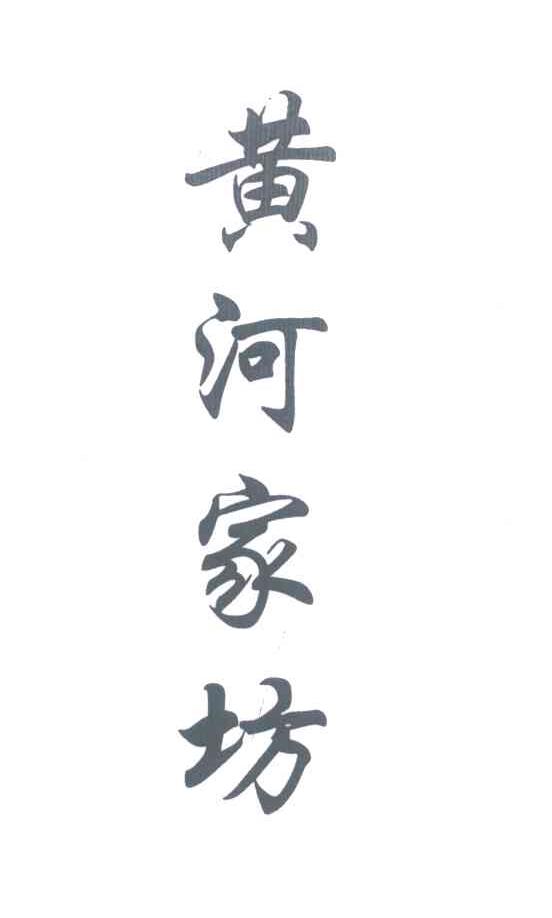 黄河家坊